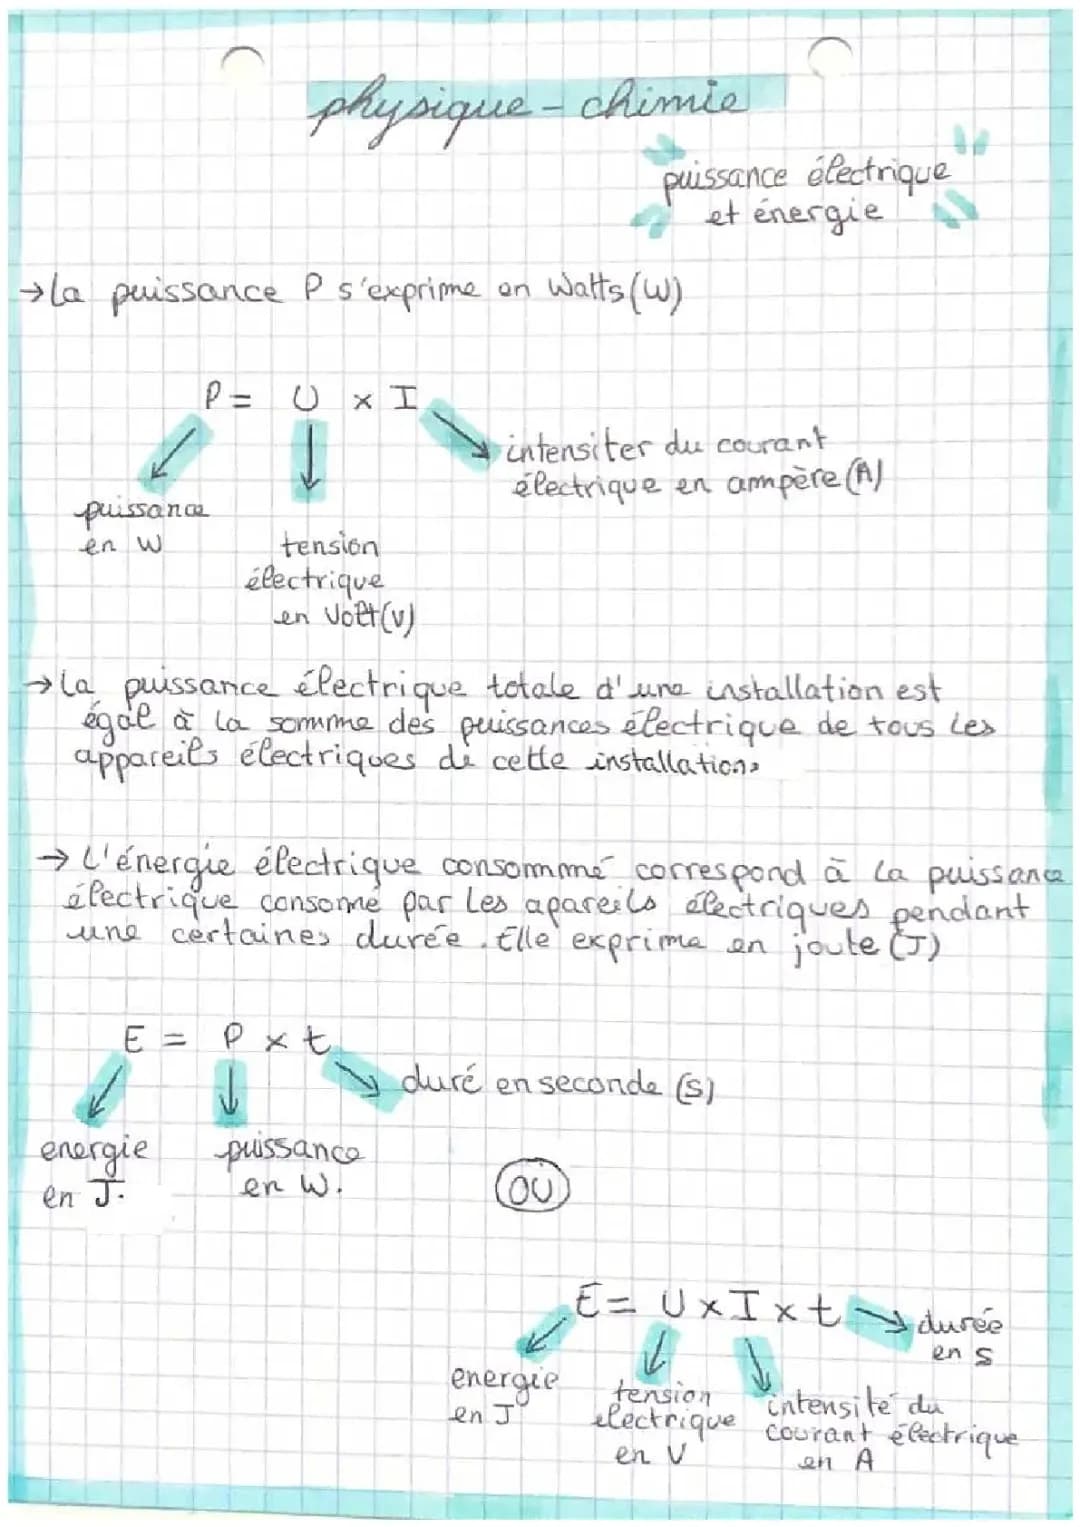 physique - chimie
puissance électrique
et énergie
→ La puissance P s'exprime en Watts (W)
P = U × I
intensiter du courant
électrique en ampère (A)
puissance
en W
tension
électrique
en Volt (V)
→ La puissance électrique totale d'une installation est
égal à la somme des puissances électrique de tous les
appareils électriques de cette installation.
→ L'énergie électrique consommé correspond à la puissance
électrique consomé par les apareils électriques pendant
une certaines durée. Elle exprime en joute (J)
E = P × t
duré en seconde (s)
energie
en J.
puissance
en W.
OU
E = U × I × t → durée
en s
energie
en J
tension
electrique
en V
intensité du
courant électrique
en A